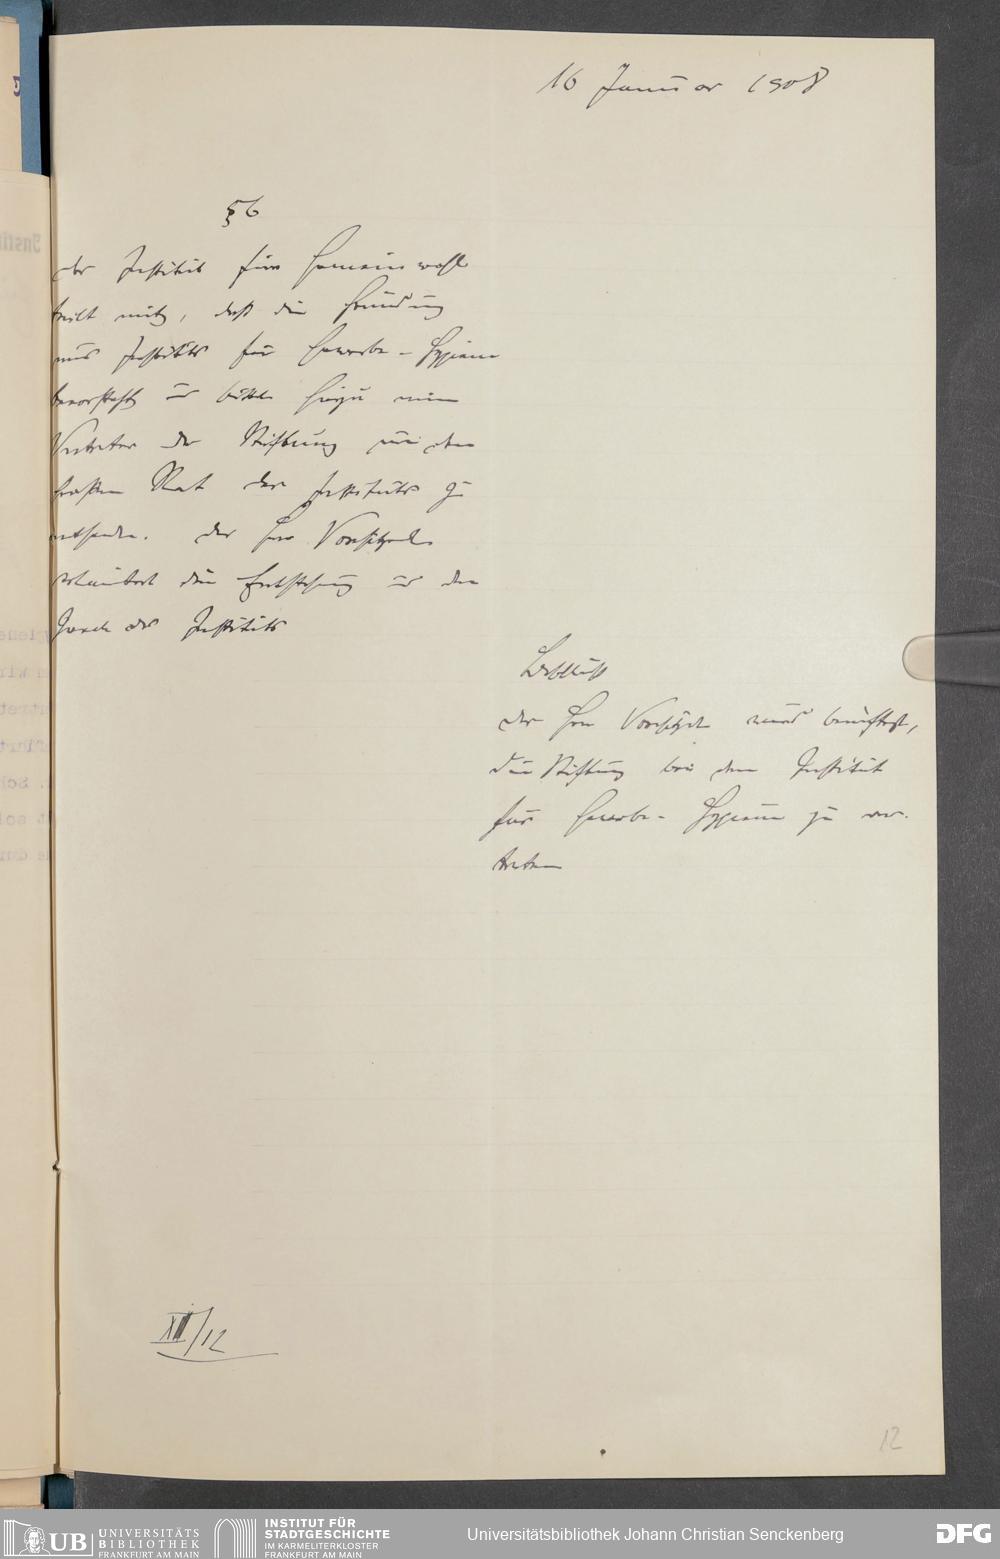 16 Januar 1908
§ 6
Das Institut für Gemeinwohl
teilt mit, daß die Gründung
eines Instituts für Gewerbe-Hygiene
bevorsteht u bittet hiezu einen
Vertreter der Stiftung in den
Großen Rat des Instituts zu
entsenden. Der Herr Vorsitzende
erläutert die Entstehung u den
Zweck des Instituts
Beschluß
Der Herr Vorsitzende wird beauftragt,
die Stiftung bei dem Institut
für Gewerbe-Hygiene zu ver-
treten
XII/12
12
UB UNIVERSITÄTS
BIBLIOTHEK
FRANKFURT AM MAIN
INSTITUT FÜR
STADTGESCHICHTE
IM KARMELITERKLOSTER
FRANKFURT AM MAIN
Universitätsbibliothek Johann Christian Senckenberg
DFG